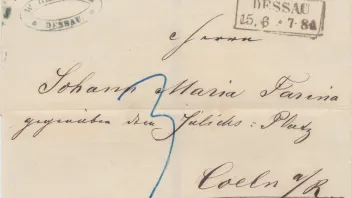 DESSAU
DESSAU
15. 6 * 7-8N
Herrn
Johann Maria Farina
gegenüber dem Jülichs-Platz
3
Coeln a/R.